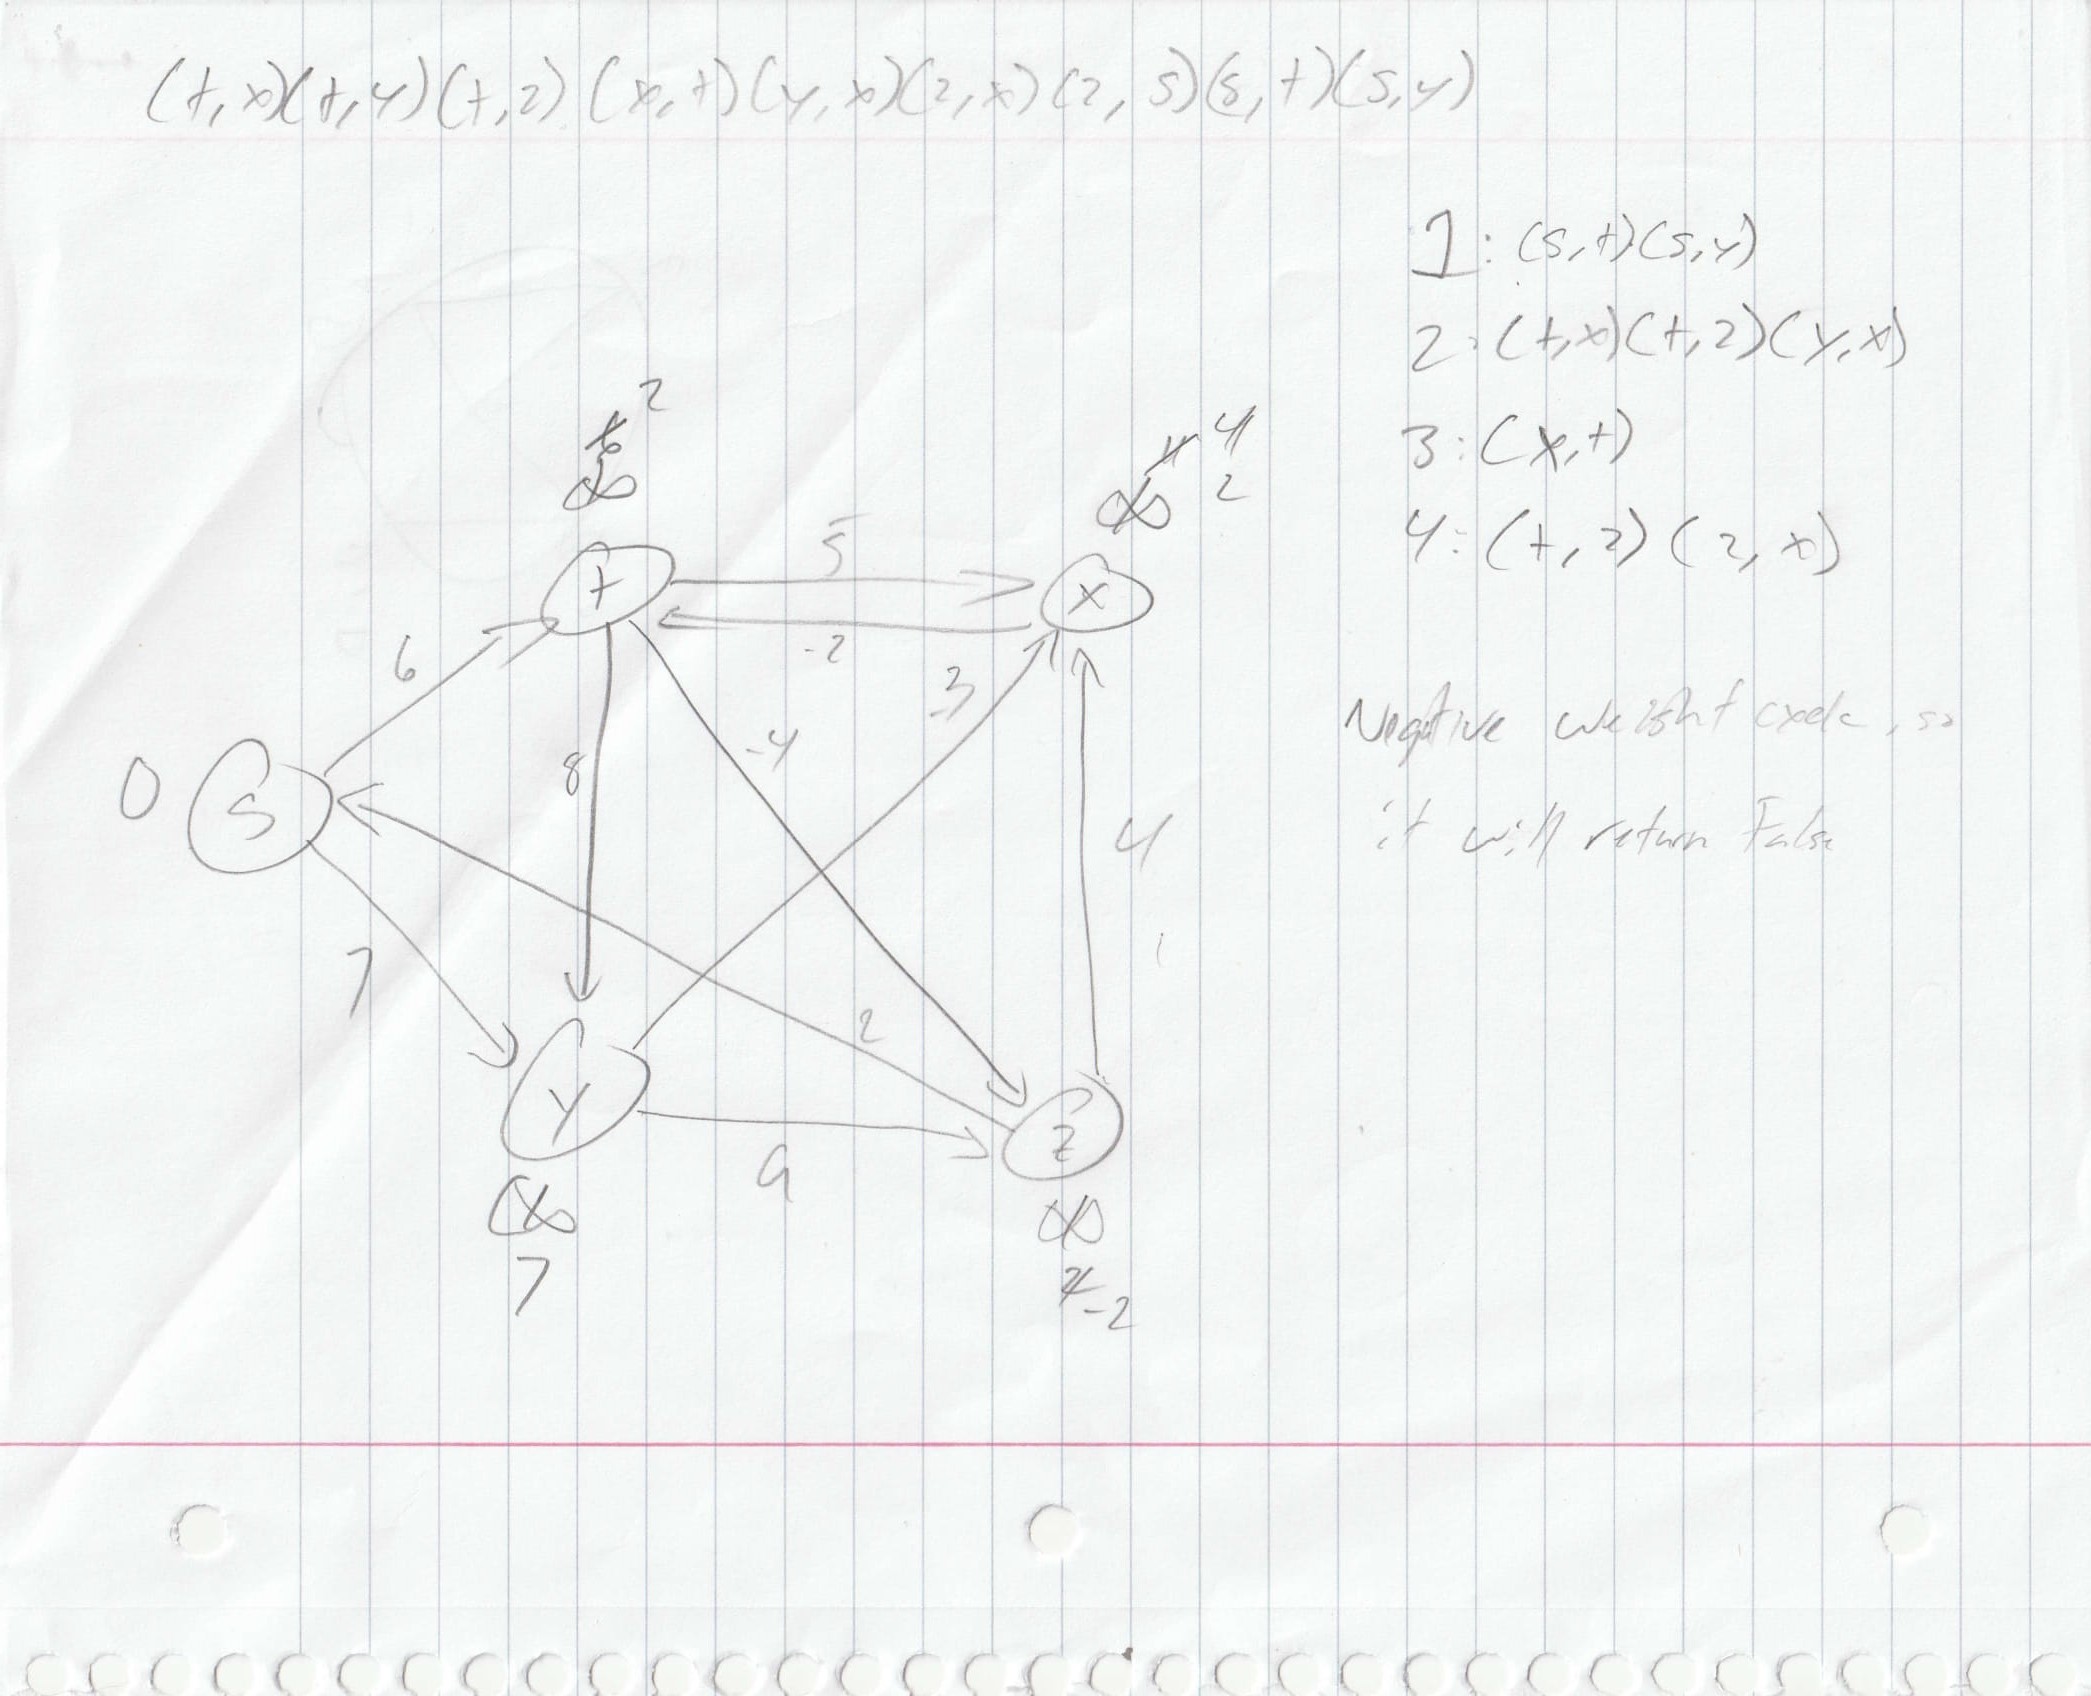 (t,x)(t,y)(t,z)(x,t)(y,x)(z,x)(z,s)(s,t)(s,y)
1: (s,t)(s,y)
2: (t,x)(t,z)(y,x)
3: (x,t)
4: (t,z)(z,x)
Negative weight
it will return False
2
6
∞
11 4
∞ 2
5
t
x
-2
6
-3
-4
8
0
s
4
7
2
y
z
9
∞
∞
7
2 -2